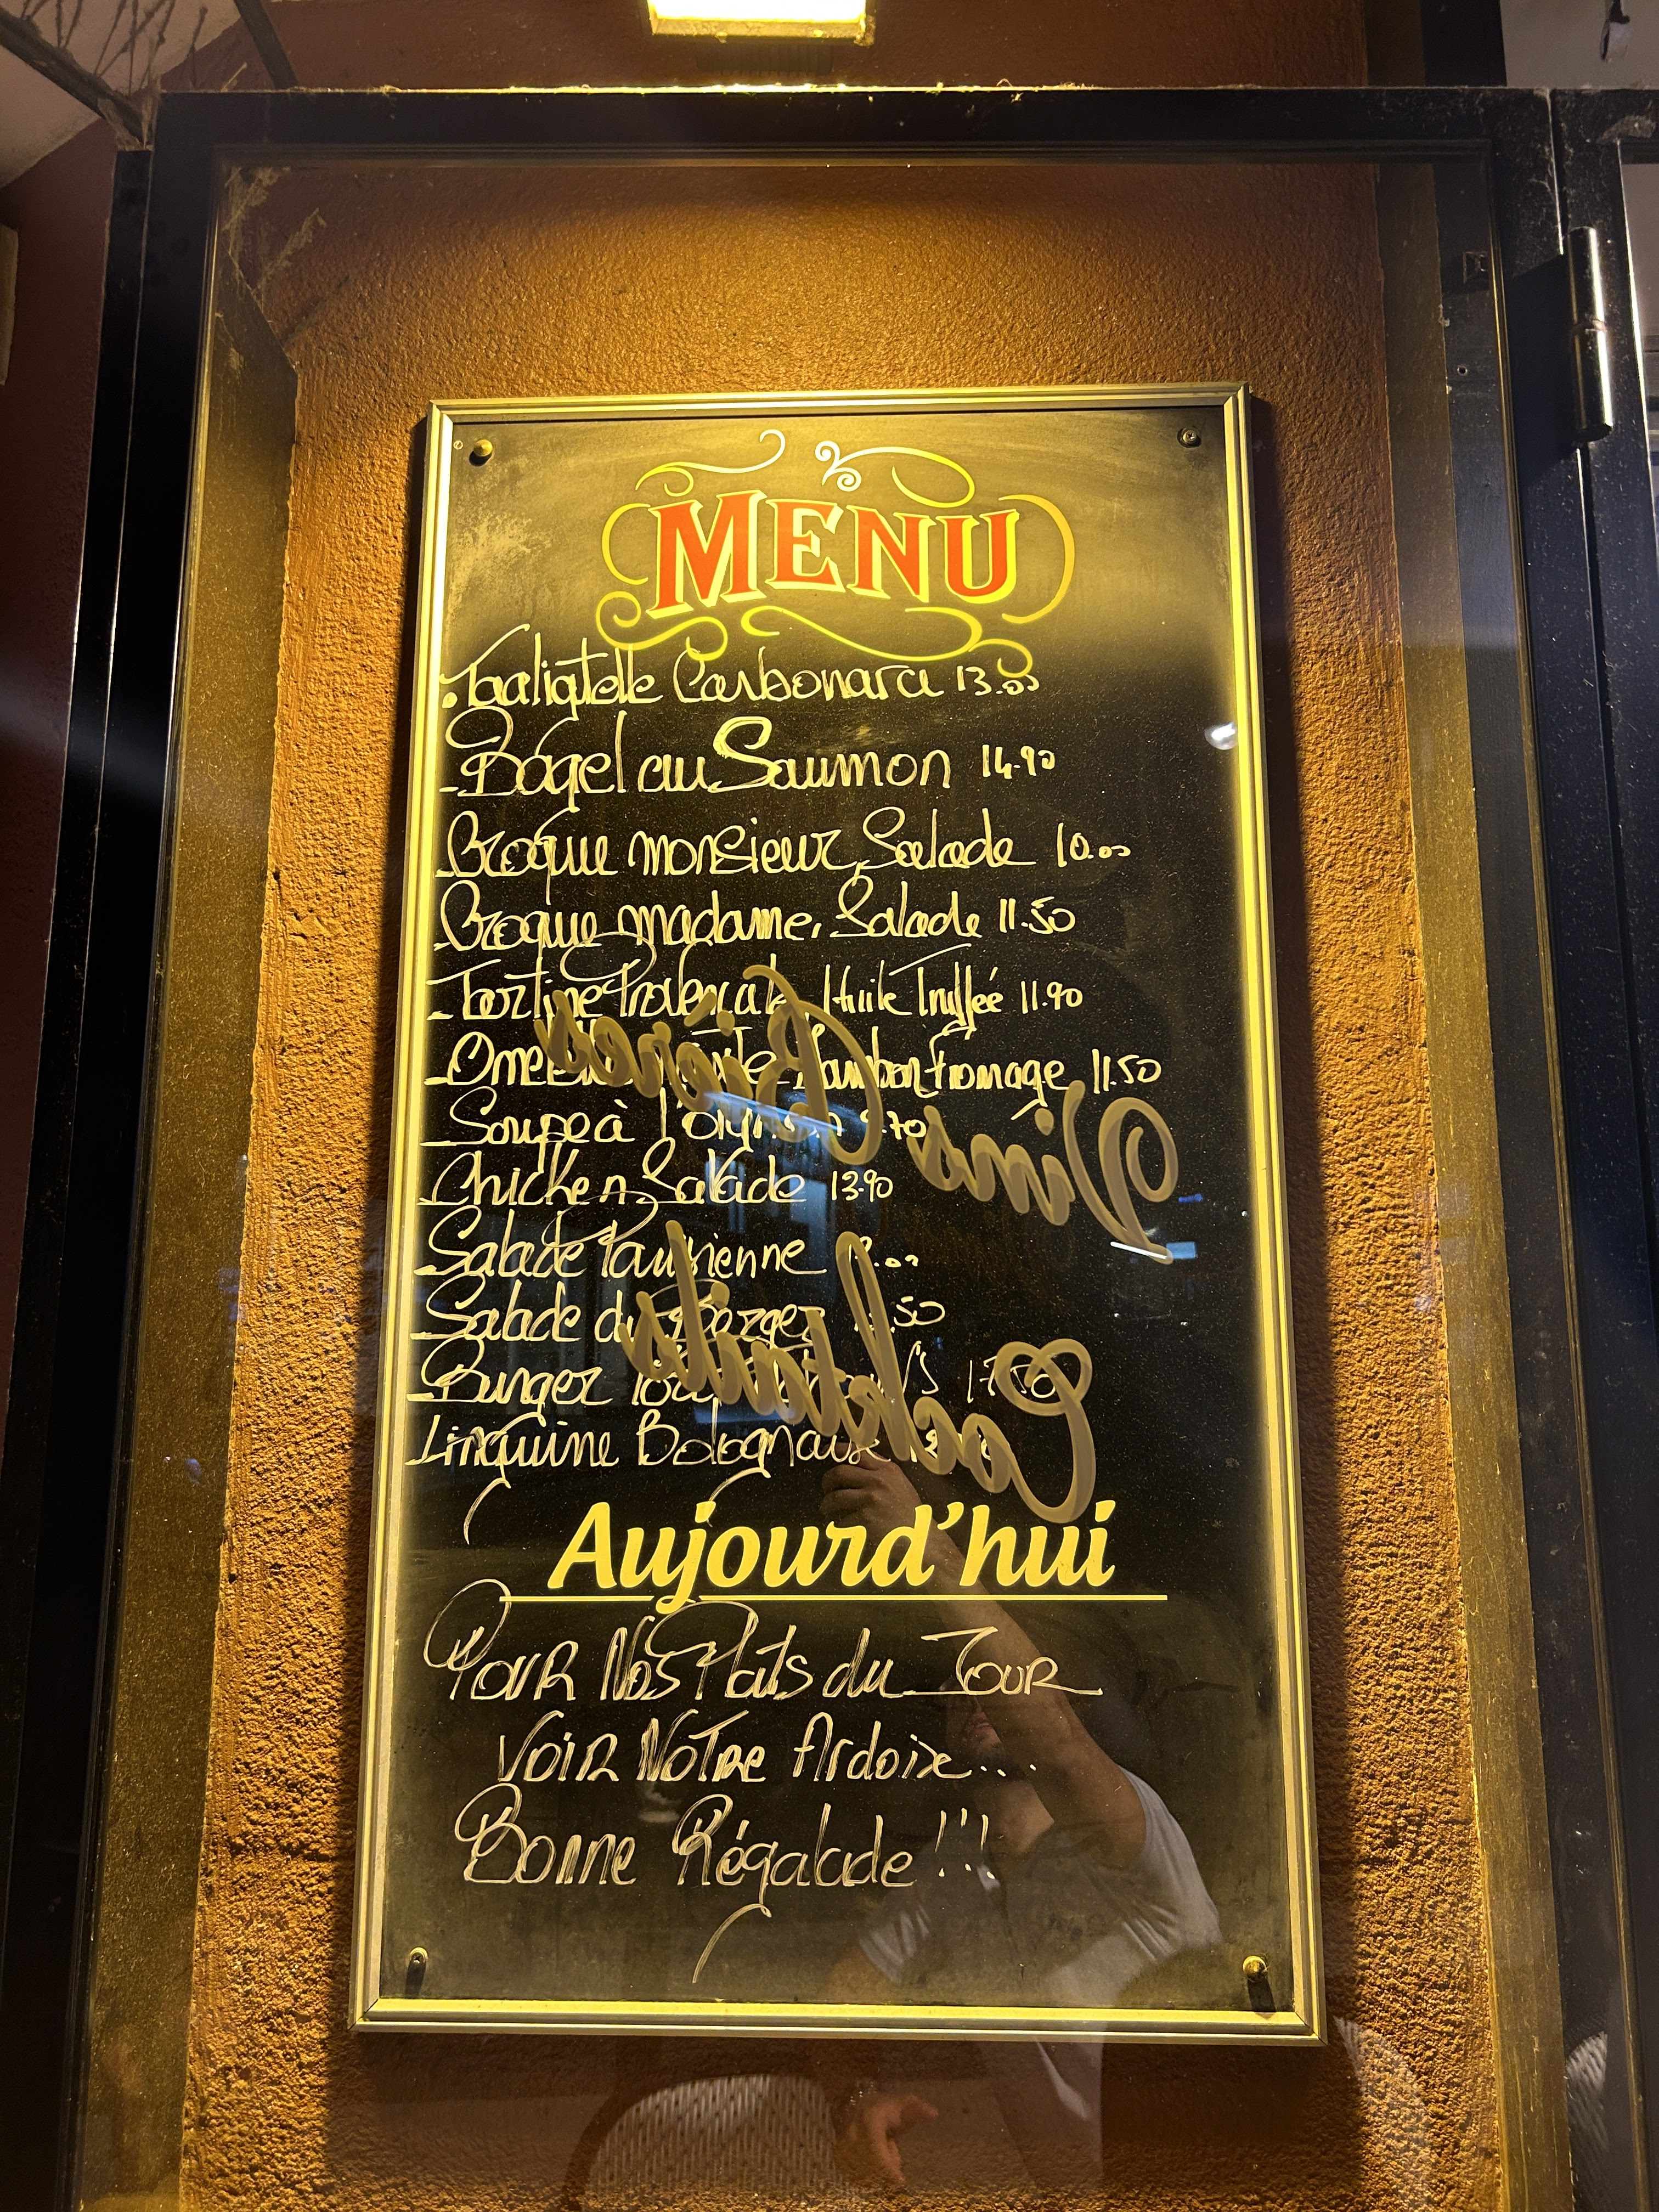 MENU
Taaliatelle Carbonara 13.00
- Bagel au Saumon 14.90
- Croque monsieur, Salade 10.00
- Croque madame, Salade 11.50
- Tartine Provençale, Huile Truffée 11.90
- Jambon fromage 11.50
- Soupe à l'oignon
- Chicken Salade 13.90
- Salade Parisienne
- Salade du Berger
- Burger
Linguine Bolognaise
Vins Bières
Cocktails
Aujourd'hui
Pour Nos Plats du Jour
Voir Notre Ardoise...
Bonne Régalade !!!